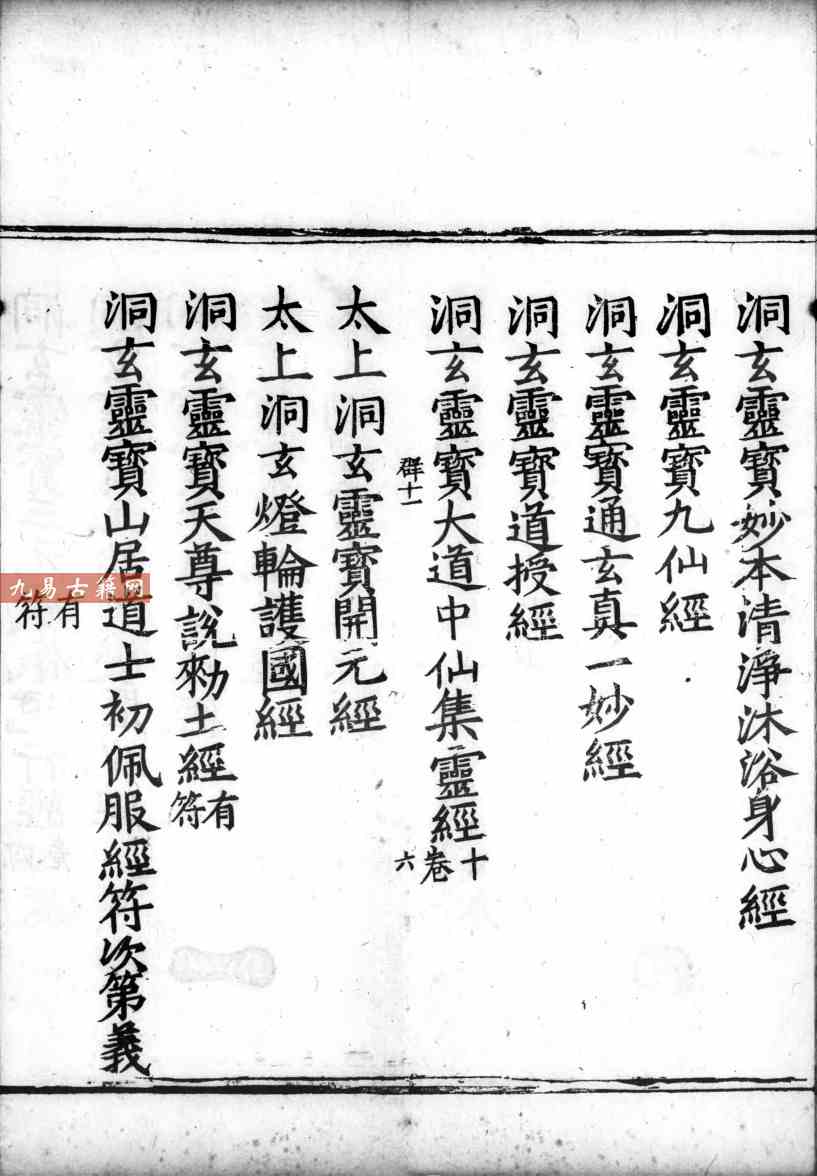 洞玄靈寶妙本清淨沐浴身心經
洞玄靈寶九仙經
洞玄靈寶通玄真一妙經
洞玄靈寶道授經
洞玄靈寶大道中仙集靈經十六卷
群十一
太上洞玄靈寶開元經
太上洞玄燈輪護國經
洞玄靈寶天尊說勑土經有符
洞玄靈寶山居道士初佩服經符次第義
有符
九易古籍网